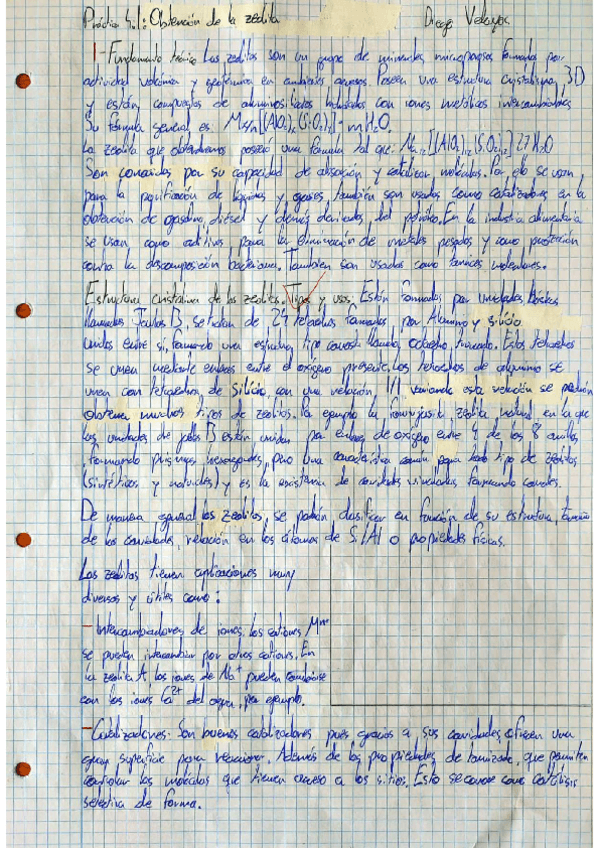 Práctica 4.1: Obtención de la zeolita Diego Velayos
1- Fundamento teórico Las zeolitas son un grupo de minerales microporosos formados por
actividad volcánica y geotérmica en ambientes acuosos. Poseen una estructura cristalina 3D
y están compuestos de aluminosilicatos hidratados con iones metálicos intercambiables
Su fórmula general es: Mx/n[(AlO2)x(SiO2)y]·mH2O.
La zeolita que obtendremos poseerá una fórmula tal que: Na12[(AlO2)12(SiO2)12]27H2O
Son conocidas por su capacidad de absorción y catalizar moléculas. Por ello se usan
para la purificación de líquidos y gases, también son usados como catalizadores en la
obtención de gasolina, diésel y demás derivados del petróleo. En la industria alimentaria
se usan como aditivos, para la eliminación de metales pesados y como protección
contra la descomposición bacteriana. También son usados como tamices moleculares.
Estructura cristalina de las zeolitas. Tipos y usos. Están formados por unidades básicas
llamadas Jaulas β, se tratan de 24 tetraedros formados por Aluminio y silicio
unidos entre sí, formando una estructura tipo conocida llamada octaedro truncado. Estos tetraedros
se unen mediante enlaces entre el oxígeno presente, los tetraedros de aluminio se
unen con tetraedros de silicio con una relación 1/1 variando esta relación se podrán
obtener muchos tipos de zeolitas. Por ejemplo la zeolita natural en la que
las unidades de jaula β están unidas por enlaces de oxígeno entre 4 de los 8 anillos
formando prismas hexagonales, pero una característica común para todo tipo de zeolitas
(sintéticas y naturales) y es la existencia de cavidades vinculadas formando canales.
De manera general las zeolitas, se podrán clasificar en función de su estructura, tamaño
de las cavidades, relación en los átomos de Si/Al o propiedades físicas.
Las zeolitas tienen aplicaciones muy
diversas y útiles como:
- Intercambiadores de iones. Los cationes Mn+
se pueden intercambiar por otros cationes. En
la zeolita A, los iones de Na+ pueden cambiarse
con los iones Ca2+ del agua, por ejemplo.
- Catalizadores. Son buenos catalizadores pues gracias a sus cavidades ofrecen una
gran superficie para reaccionar. Además de las propiedades de tamizado, que permiten
controlar las moléculas que tienen acceso a los sitios. Esto se conoce como catálisis
selectiva de forma.